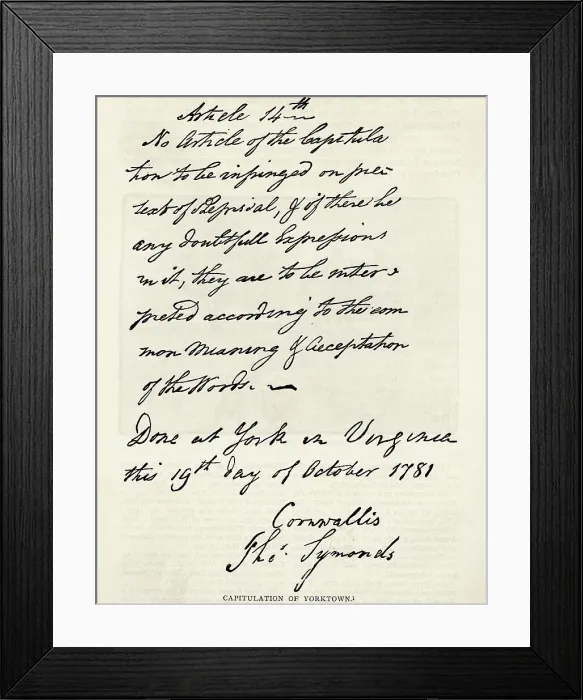 Article 14th
No Article of the Capitula
tion to be infringed on pre-
text of Reprisal, & if there be
any doubtfull Expressions
in it, they are to be inter-
preted according to the com
mon Meaning & Acceptation
of the Words.
Done at York in Virginia
this 19th day of October 1781
Cornwallis
Thos. Symonds
CAPITULATION OF YORKTOWN.1